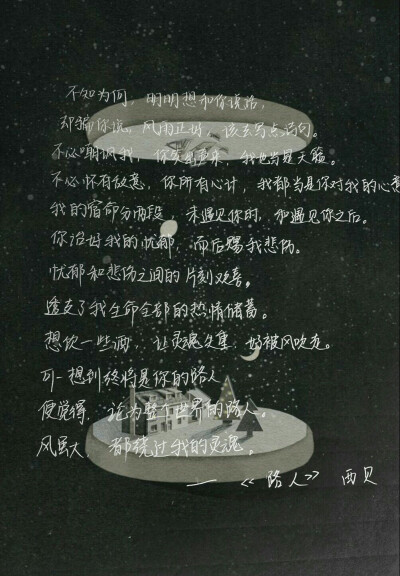 不知为何，明明想和你说话，
却骗你说，风雨正好，该去写点诗句。
不必嘲讽我，你笑出声来，我也当是天籁。
不必怀有敌意，你所有心计，我都当是你对我的心意
我的宿命分两段，未遇见你时，和遇见你之后。
你治好我的忧郁，而后赐我悲伤。
忧郁和悲伤之间的片刻欢喜。
透支了我生命全部的热情储蓄。
想饮一些酒，让灵魂失重，好被风吹走。
可一想到终将是你的路人
便觉得，沦为整个世界的路人。
风虽大，都绕过我的灵魂。
——《路人》西贝